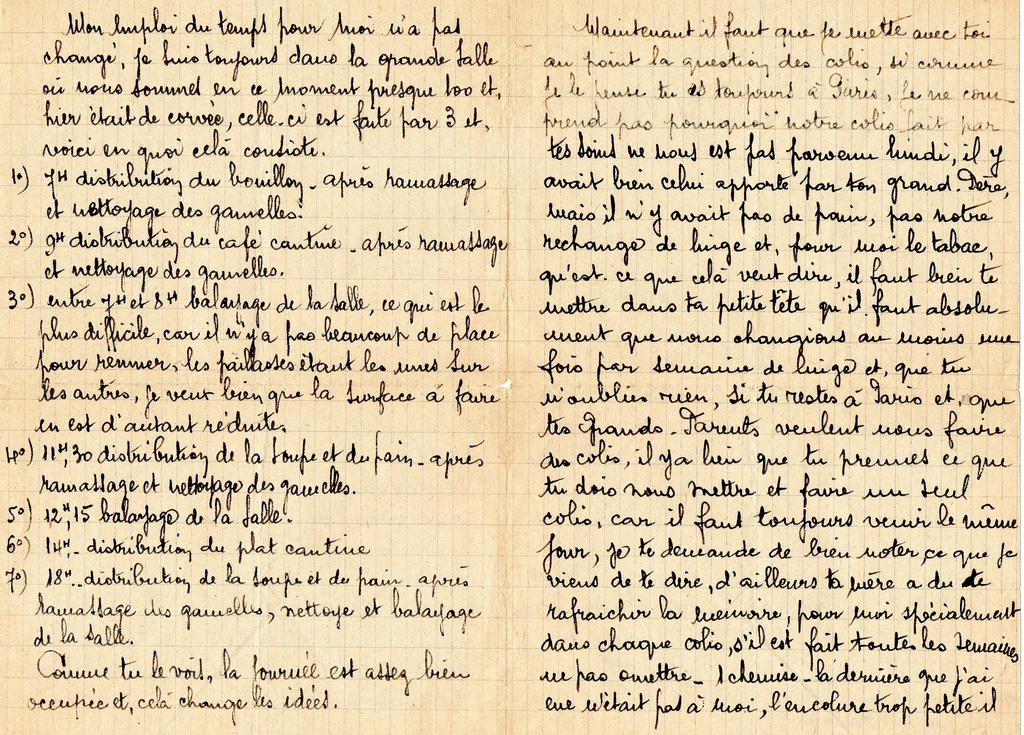 Mon Emploi du temps pour moi n'a pas
changé, je suis toujours dans la grande Salle
où nous sommes en ce moment presque 100 et,
hier était de corvée, celle-ci est faite par 3 et,
voici en quoi celà consiste.
1o) 7H distribution du bouillon - après ramassage
et nettoyage des gamelles.
2o) 9H distribution du café cantine - après ramassage
et nettoyage des gamelles.
3o) entre 7H et 8H balayage de la salle, ce qui est le
plus difficile, car il n'y a pas beaucoup de place
pour remuer, les paillasses étant les unes sur
les autres, je veux bien que la surface à faire
en est d'autant réduite.
4o) 11H,30 distribution de la soupe et du pain - après
ramassage et nettoyage des gamelles.
5o) 12H,15 balayage de la Salle.
6o) 14H - distribution du plat cantine
7o) 18H - distribution de la soupe et du pain - après
ramassage des gamelles, nettoye et balayage
de la salle.
Comme tu le vois, la journée est assez bien
occupée et, celà change les idées.
Maintenant il faut que je mette avec toi
au point la question des colis, si comme
je le pense tu es toujours à Paris, je ne com-
prend pas pourquoi notre colis fait par
tes soins ne nous est pas parvenu lundi, il y
avait bien celui apporté par ton grand-Père,
mais il n'y avait pas de pain, pas notre
rechange de linge et, pour moi le tabac,
qu'est-ce que celà veut dire, il faut bien te
mettre dans ta petite tête qu'il faut absolu-
ment que nous changions au moins une
fois par semaine de linge et, que tu
n'oublies rien, si tu restes à Paris et, que
tes Grands-Parents veulent nous faire
des colis, il y a lieu que tu prennes ce que
tu dois nous mettre et faire un seul
colis, car il faut toujours venir le même
jour, je te demande de bien noter ce que je
viens de te dire, d'ailleurs ta mère a du te
rafraichir la mémoire, pour moi spécialement
dans chaque colis, s'il est fait toutes les semaines
ne pas omettre - 1 chemise - la dernière que j'ai
eue n'était pas à moi, l'encolure trop petite il